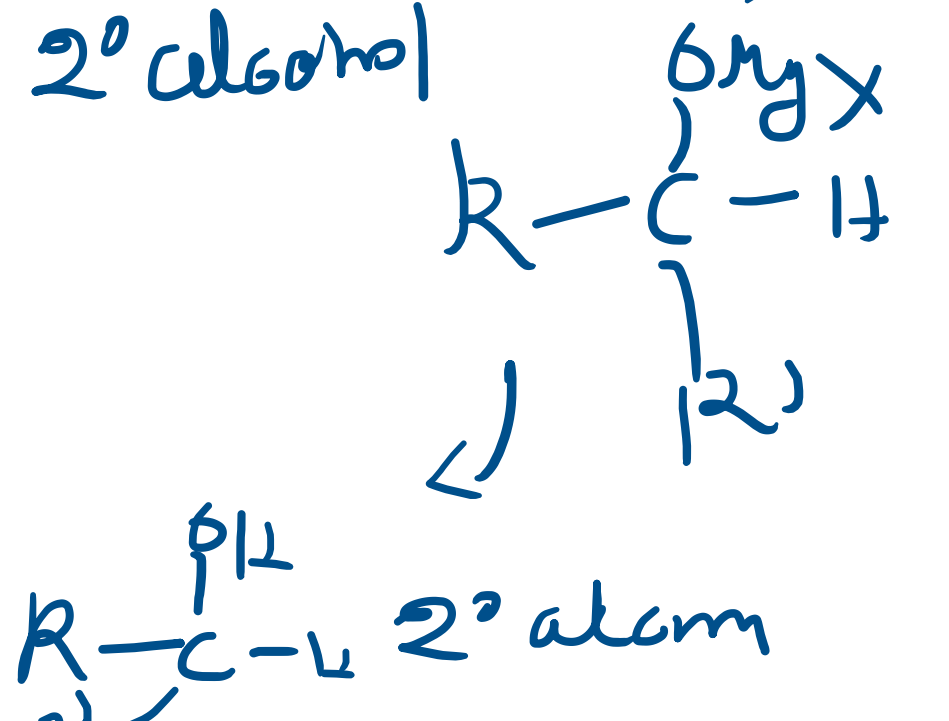 2° alcohol
OMgX
R — C — H
R'
OH
R — C — H 2° alcom